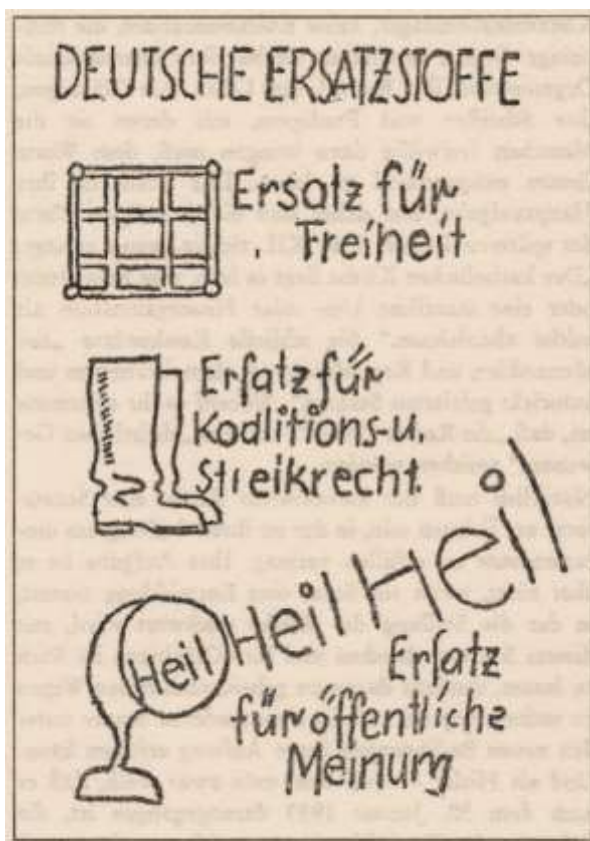 DEUTSCHE ERSATZSTOFFE
Ersatz für
Freiheit
Erſatz für
Koalitions-u.
Streikrecht.
Heil Heil Heil
Erſatz
für öffentliche
Meinung